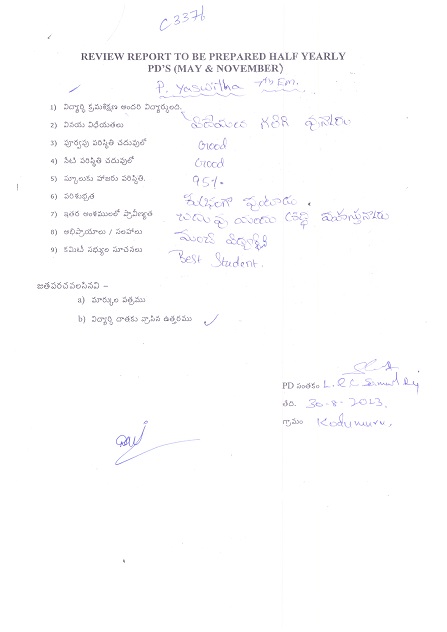 C3376
REVIEW REPORT TO BE PREPARED HALF YEARLY
PD'S (MAY & NOVEMBER)
P. Yaswitha 7th EM.
1) విద్యార్థి క్రమశిక్షణ అందరి విద్యార్థులది.
2) వినయ విధేయతలు
3) పూర్వపు పరిస్థితి చదువులో Good
4) నేటి పరిస్థితి చదువులో Good
5) స్కూలుకు హాజరు పరిస్థితి. 95%
6) పరిశుభ్రత
7) ఇతర అంశములలో ప్రావీణ్యత
8) అభిప్రాయాలు / సలహాలు మంచి విద్యార్థిని
9) కమిటి సభ్యుల సూచనలు Best Student.
జతపరచవలసినవి –
a) మార్కుల పత్రము
b) విద్యార్థి దాతకు వ్రాసిన ఉత్తరము ✓
PD సంతకం
తేది. 30-8-2023.
గ్రామం Kodumuru.